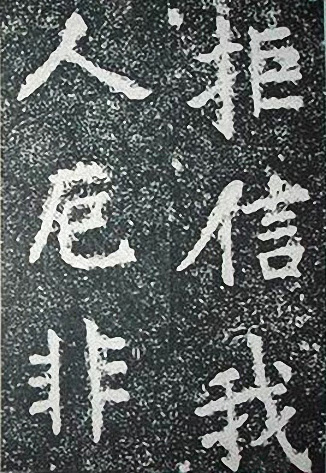 拒信我
人非